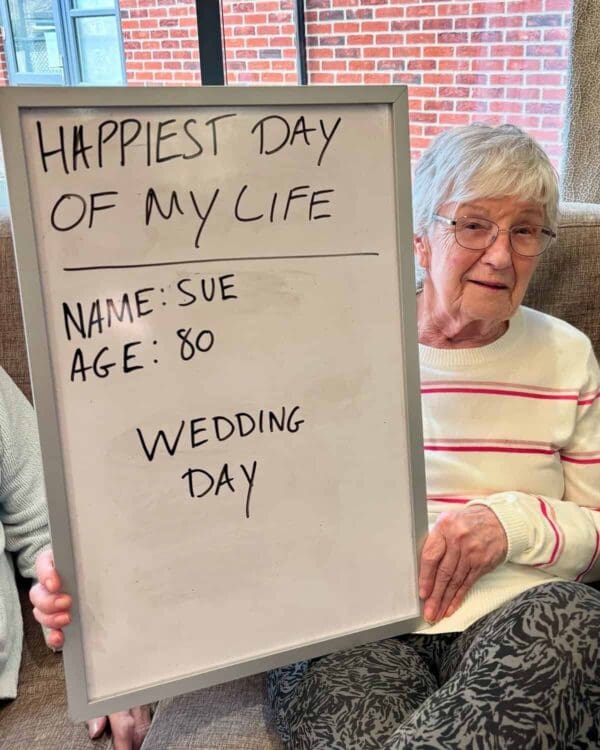 HAPPIEST DAY
OF MY LIFE
NAME: SUE
AGE: 80
WEDDING
DAY